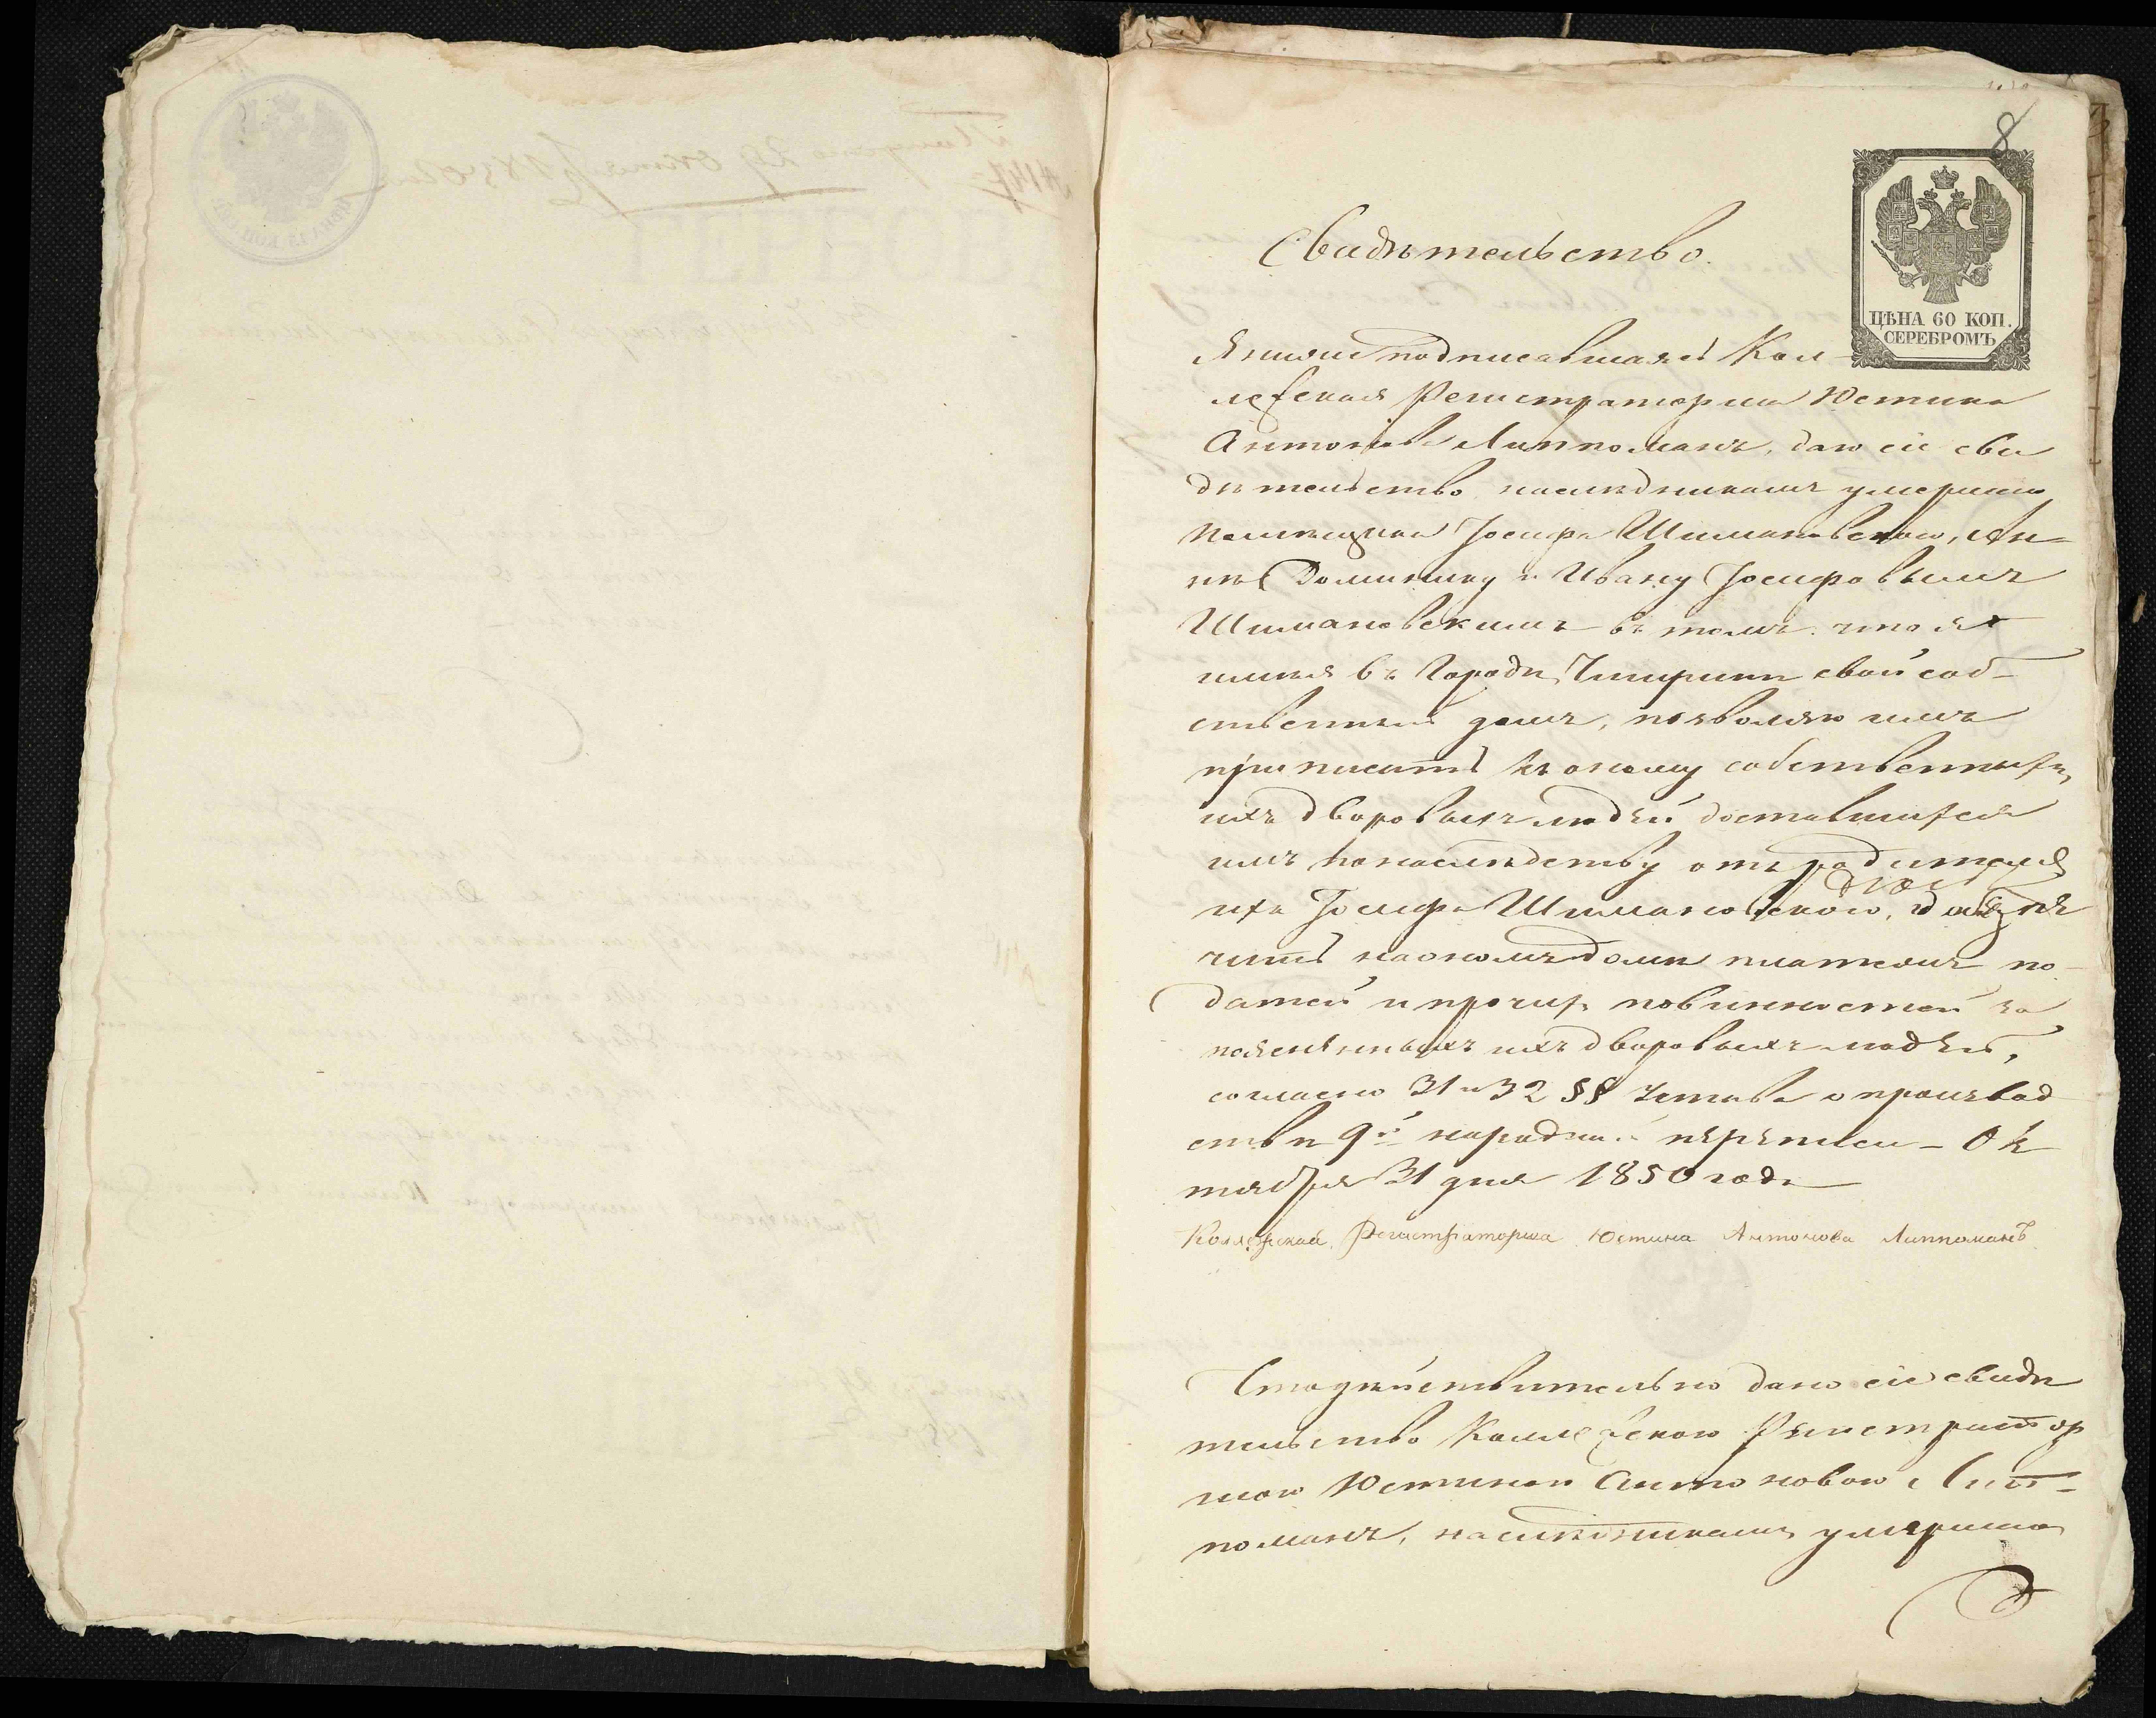 8
ЦѢНА 60 КОП.
СЕРЕБРОМЪ
Свидѣтельство.
Я ниже подписавшаяся Кол-
лежская Регистраторша Юстина
Антонова Липпоманъ, даю сіе сви
дѣтельство наслѣдникамъ умершаго
помѣщика Іосифа Шимановскаго, Ан-
нѣ Доминику и Ивану Іосифовымъ
Шимановскимъ въ томъ что я
имѣя въ Городѣ Чигиринѣ свой соб-
ственный домъ, позволяю имъ
приписать къ оному собственныхъ
ихъ дворовыхъ людей доставшихся
имъ по наслѣдству отъ родителя
ихъ Іосифа Шимановскаго,
чить на ономъ домѣ платежъ по-
датей и прочихъ повинностей за
поясненныхъ ихъ дворовыхъ людей,
согласно 31 и 32 §§ Устава о производ
ствѣ 9й народной переписи - Ок
тября 31 дня 1850 года
Коллежская Регистраторша Юстина Антонова Липпоманъ
Что дѣйствительно дано сіе свидѣ
тельство Коллежскою Регистратор
шою Юстиною Антоновою Лип-
поманъ, наслѣдникамъ умершаго